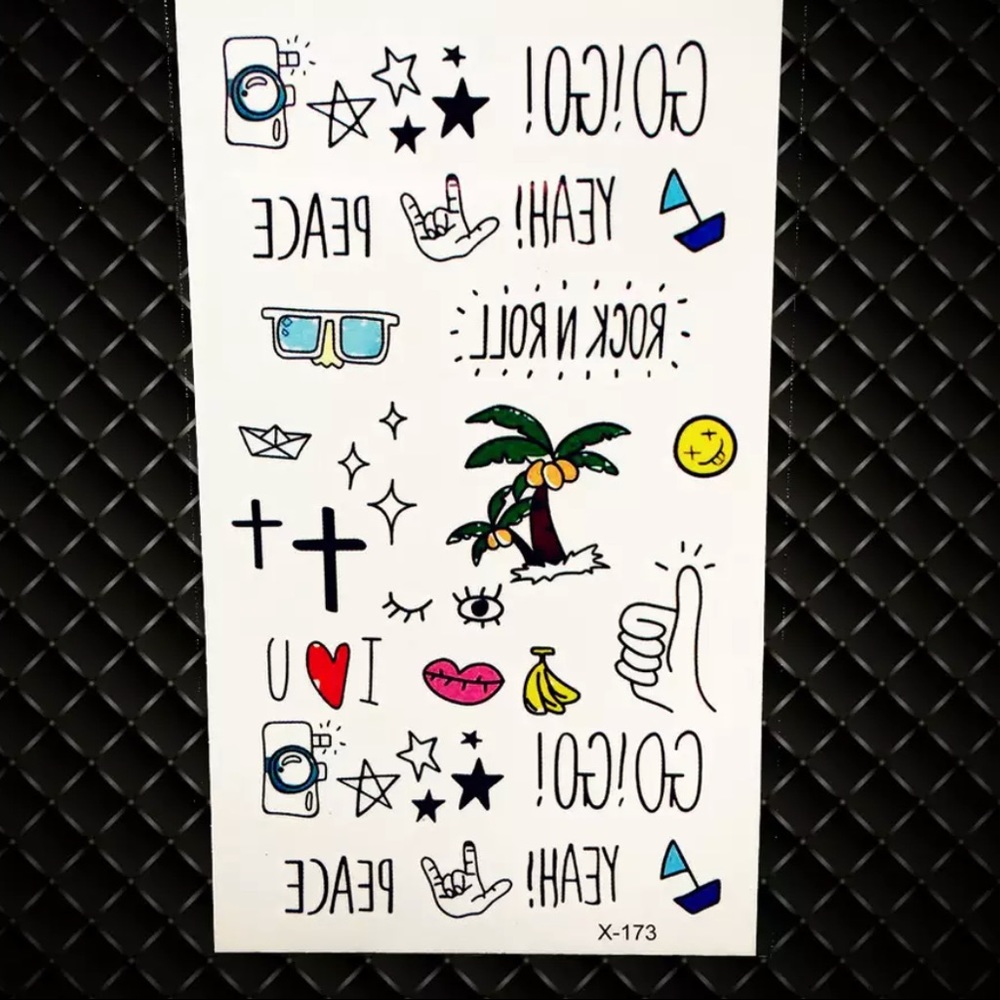 GO!GO!
PEACE
YEAH!
ROCK N ROLL
I U
GO!GO!
PEACE
YEAH!
X-173